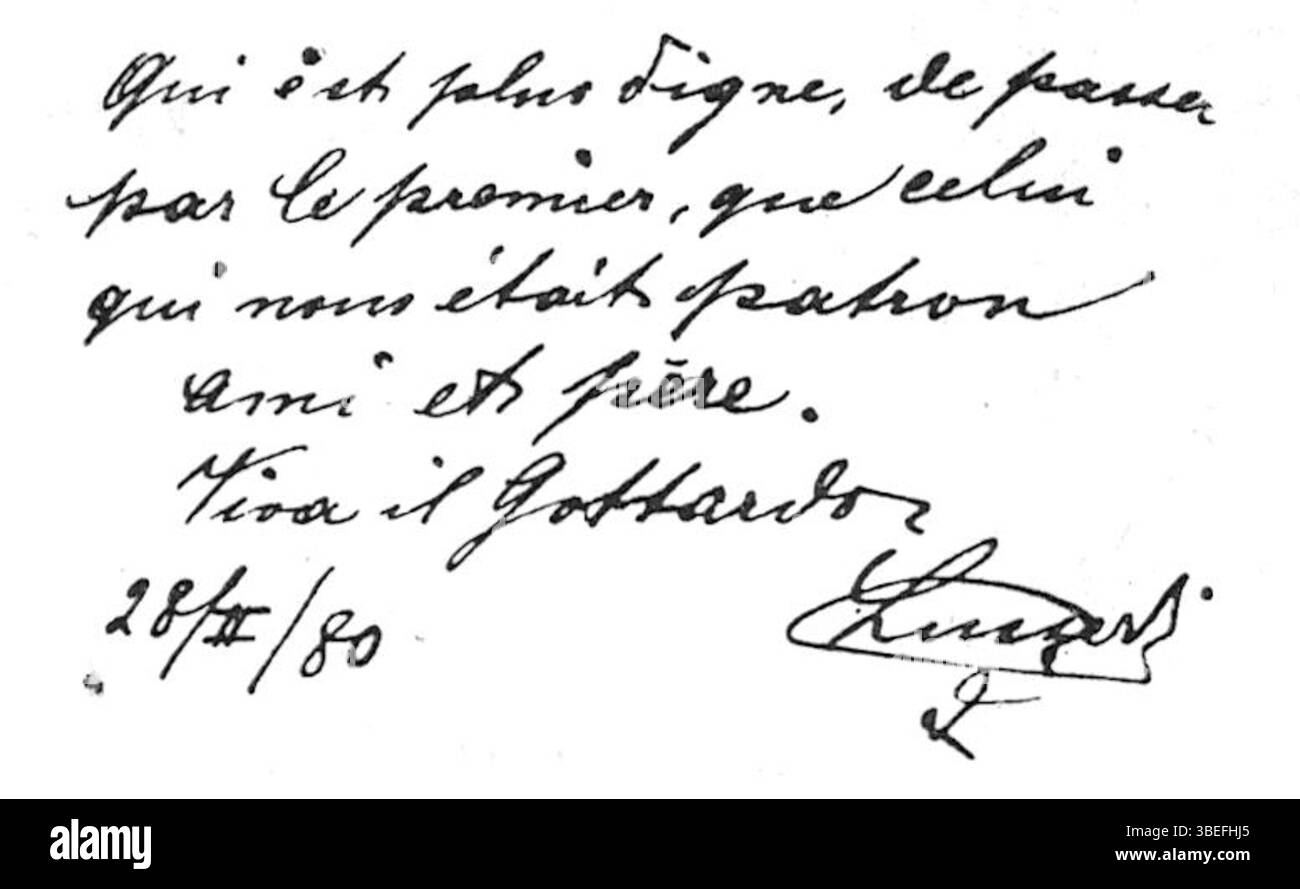 Qui èst plus digne, de passer
par le premier, que celui
qui nous était patron
ami et père.
Viva il Gottardo
28/II/80
alamy
Image ID: 3BEFHJ5
www.alamy.com